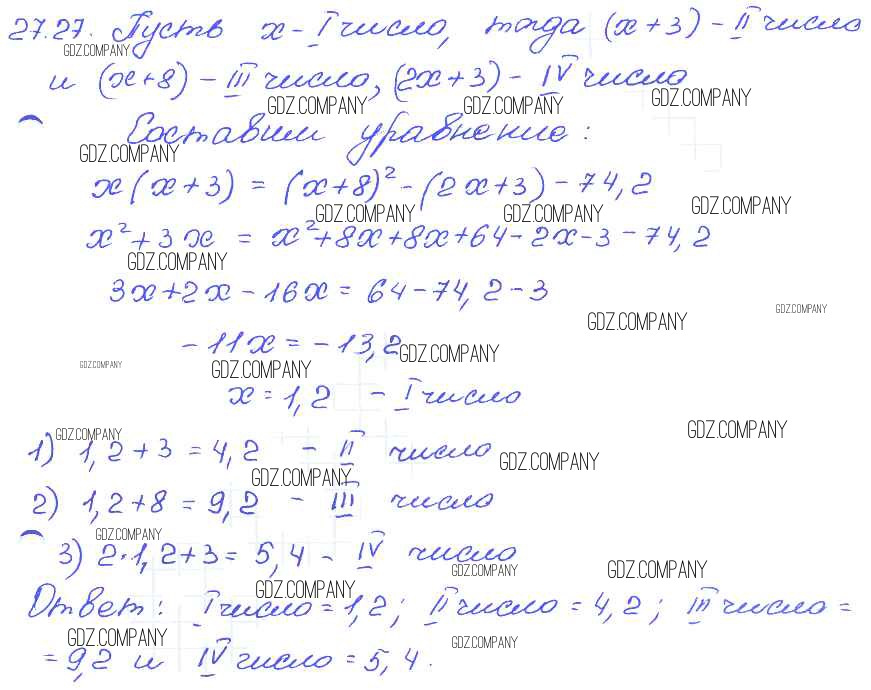 27.27. Пусть x - I число, тогда (x+3) - II число
GDZ.COMPANY
и (x+8) - III число, (2x+3) - IV число
GDZ.COMPANY GDZ.COMPANY GDZ.COMPANY
Составим уравнение:
GDZ.COMPANY
x(x+3) = (x+8)² - (2x+3) - 74,2
GDZ.COMPANY GDZ.COMPANY GDZ.COMPANY
x² + 3x = x² + 8x + 8x + 64 - 2x - 3 - 74,2
GDZ.COMPANY
3x + 2x - 16x = 64 - 74,2 - 3
GDZ.COMPANY GDZ.COMPANY
- 11x = - 13,2
GDZ.COMPANY GDZ.COMPANY GDZ.COMPANY
x = 1,2 - I число
GDZ.COMPANY GDZ.COMPANY
1) 1,2 + 3 = 4,2 - II число
GDZ.COMPANY GDZ.COMPANY
2) 1,2 + 8 = 9,2 - III число
GDZ.COMPANY
3) 2·1,2 + 3 = 5,4 - IV число
GDZ.COMPANY GDZ.COMPANY GDZ.COMPANY
Ответ: I число = 1,2; II число = 4,2; III число =
GDZ.COMPANY GDZ.COMPANY
= 9,2 и IV число = 5,4.